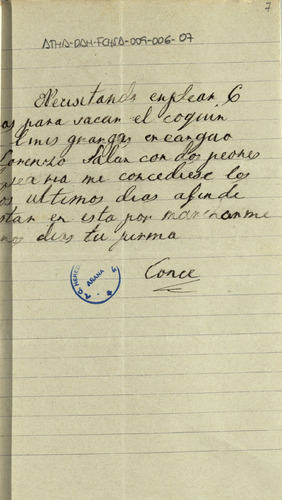 7
ATHA-DAH-FCHSA-009-006-07
Necesitando emplear 6
as para sacar el
mis granjas encargao
Lorenzo Salan con dos peones
searia me concediese los
os ultimos dias afin de
star en esta por marcharme
nos dias tu
Conce
AÑANA